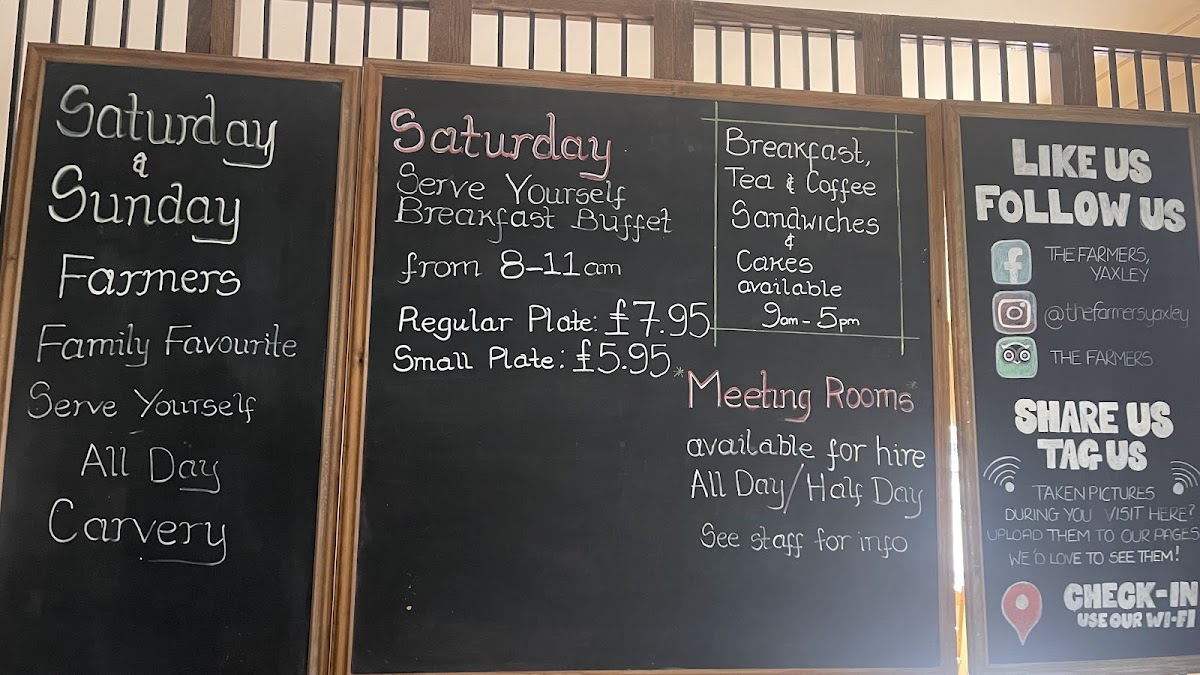 Saturday
&
Sunday
Farmers
Family Favourite
Serve Yourself
All Day
Carvery
Saturday
Serve Yourself
Breakfast Buffet
from 8-11am
Regular Plate: £7.95
Small Plate: £5.95
Breakfast,
Tea & Coffee
Sandwiches
&
Cakes
available
9am - 5pm
*Meeting Rooms*
available for hire
All Day/Half Day
See staff for info
LIKE US
FOLLOW US
THE FARMERS,
YAXLEY
@thefarmersyaxley
THE FARMERS
SHARE US
TAG US
TAKEN PICTURES
DURING YOU VISIT HERE?
UPLOAD THEM TO OUR PAGES
WE'D LOVE TO SEE THEM!
CHECK-IN
USE OUR WI-FI